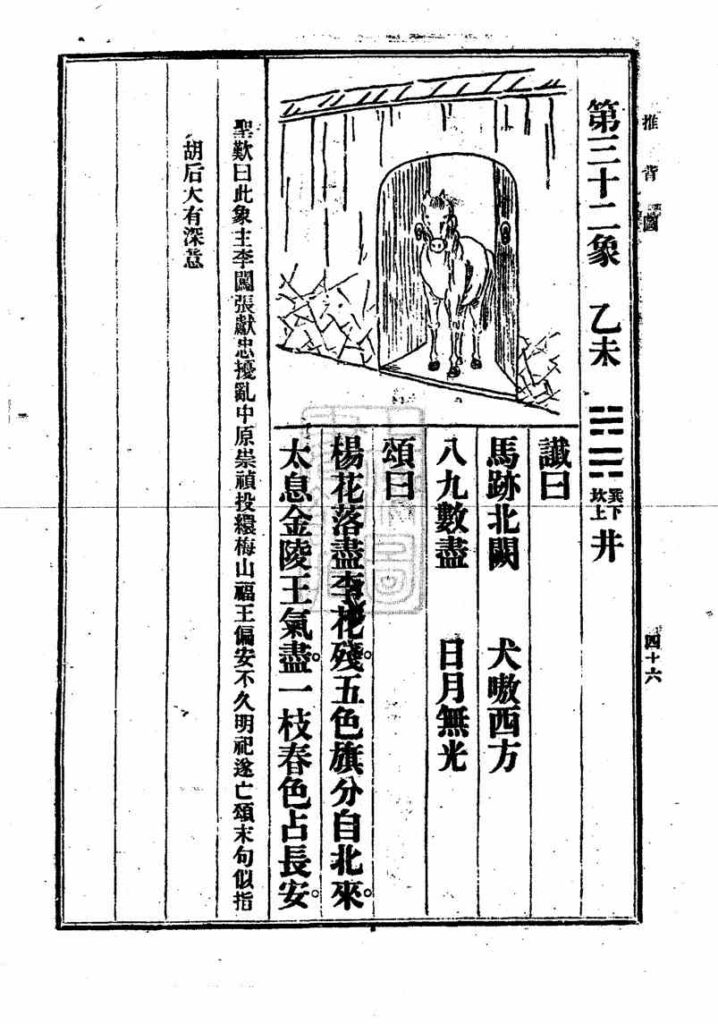 推背圖
四十六
第三十二象 乙未 巽下坎上 井
讖曰
馬跡北闕 犬嗷西方
八九數盡 日月無光
頌曰
楊花落盡李花殘。五色旗分自北來。
太息金陵王氣盡。一枝春色占長安。
聖歎曰此象主李闖張獻忠擾亂中原崇禎投繯梅山福王偏安不久明祀遂亡頌末句似指
胡后大有深意